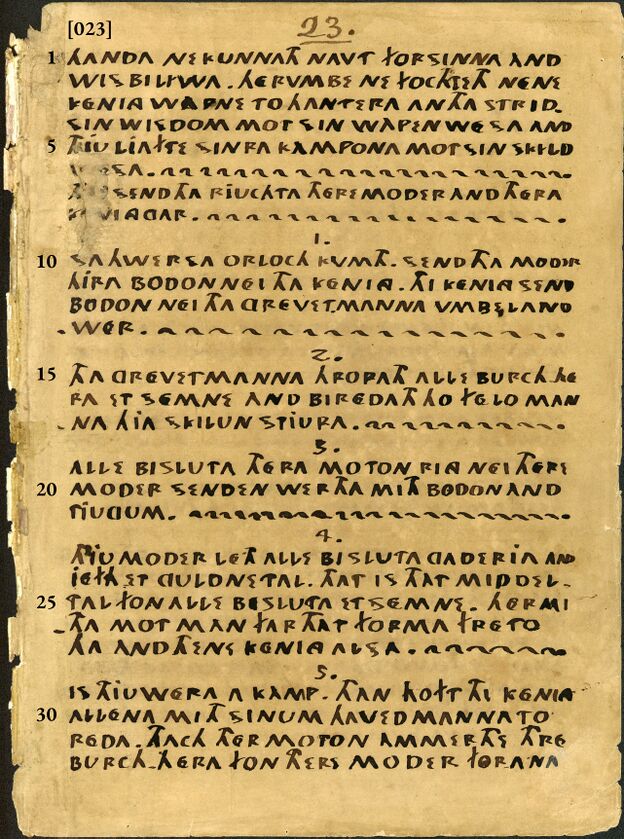 [023]
23.
1 HANDA NE KUNNATH NAVT FORSINNA AND
WIS BILIWA. HERVMBE NE FOCHTETH NENE
KENING WAPNE TO HANTERA AN THA STRID.
SIN WISDOM MOT SIN WAPEN WESA AND
5 THJU LJAFTE SINRA KAMPONA MOT SIN SKILD
WESA.
THIT SEND THA RJUCHTA THERE MODER AND THERA
KENINGGAR.
1.
10 SAHWERSA ORLOCH KVMTH. SEND THA MODER
HJRA BODON NEI THA KENING. THI KENING SEND
BODON NEI THA GREVETMANNA VMBE LAND
-WER.
2.
15 THA GREVETMANNA HROPATH ALLE BURCH-HE
RA ET SEMNE AND BIREDATH HO FELO MAN
-NA HJA SKILUN STJURA.
3.
ALLE BISLUTA THERA MOTON RING NEI THERE
20 MODER SENDEN WERTHA MITH BODON AND
TJUGUM.
4.
THJU MODER LETH ALLE BISLUTA GADERJA AND
JEFTH ET GULDNETAL. THAT IS THAT MIDDEL-
25 TAL FON ALLE BISLUTA ET SEMNE. HERMI
-THA MOT MAN FAR THAT FORMA FRETO
HA AND THENE KENING ALSA.
5.
IS THJU WERA A KAMP. THAN HOFT THI KENING
30 ALLENA MITH SINUM HAVEDMANNA TO
REDA. THACH THER MOTON AMMERTHE THRE
BURCH-HERA FON THERE MODER FORANA